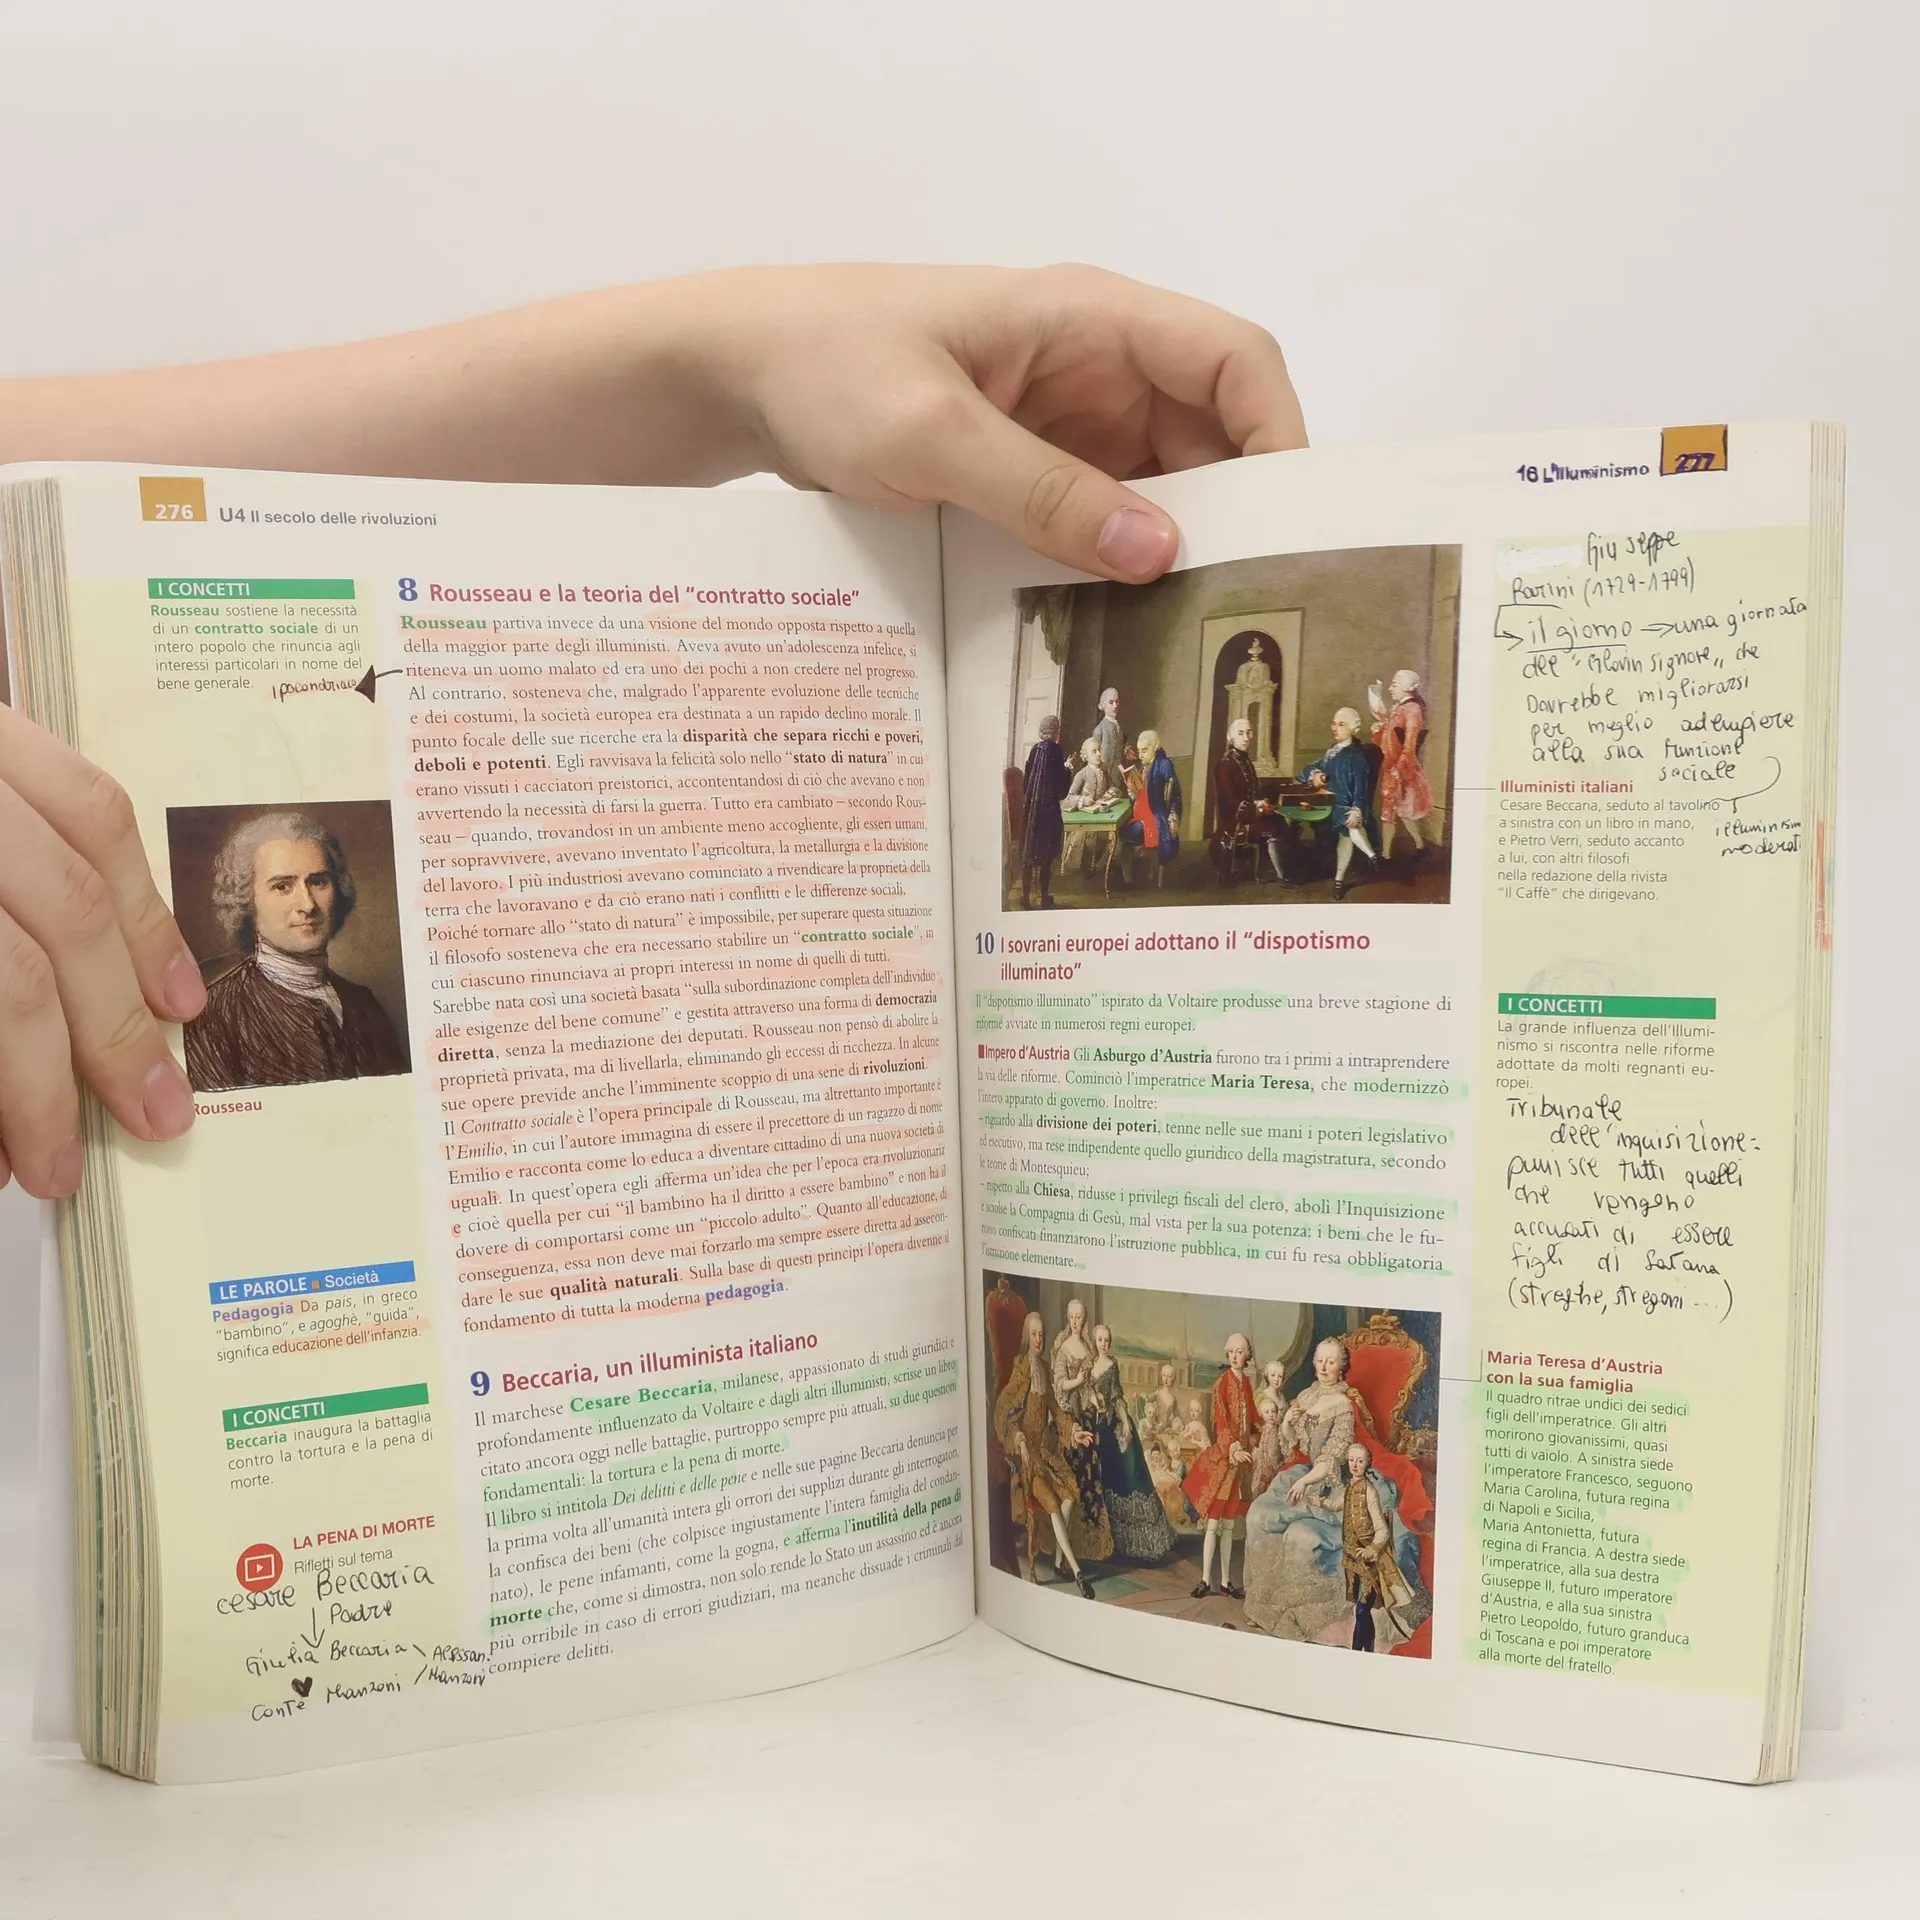 276 U4 Il secolo delle rivoluzioni
I CONCETTI
Rousseau sostiene la necessità
di un contratto sociale di un
intero popolo che rinuncia agli
interessi particolari in nome del
bene generale.
ipocondriaco
Rousseau
LE PAROLE ■ Società
Pedagogia Da pais, in greco
"bambino", e agoghè, "guida",
significa educazione dell'infanzia.
I CONCETTI
Beccaria inaugura la battaglia
contro la tortura e la pena di
morte.
LA PENA DI MORTE
Rifletti sul tema
cesare Beccaria
Padre
Giulia Beccaria \ Alessan.
Conte Manzoni / Manzoni
8 Rousseau e la teoria del "contratto sociale"
Rousseau partiva invece da una visione del mondo opposta rispetto a quella
della maggior parte degli illuministi. Aveva avuto un'adolescenza infelice, si
riteneva un uomo malato ed era uno dei pochi a non credere nel progresso.
Al contrario, sosteneva che, malgrado l'apparente evoluzione delle tecniche
e dei costumi, la società europea era destinata a un rapido declino morale. Il
punto focale delle sue ricerche era la disparità che separa ricchi e poveri,
deboli e potenti. Egli ravvisava la felicità solo nello "stato di natura" in cui
erano vissuti i cacciatori preistorici, accontentandosi di ciò che avevano e non
avvertendo la necessità di farsi la guerra. Tutto era cambiato – secondo Rous-
seau – quando, trovandosi in un ambiente meno accogliente, gli esseri umani,
per sopravvivere, avevano inventato l'agricoltura, la metallurgia e la divisione
del lavoro. I più industriosi avevano cominciato a rivendicare la proprietà della
terra che lavoravano e da ciò erano nati i conflitti e le differenze sociali.
Poiché tornare allo "stato di natura" è impossibile, per superare questa situazione
il filosofo sosteneva che era necessario stabilire un "contratto sociale", in
cui ciascuno rinunciava ai propri interessi in nome di quelli di tutti.
Sarebbe nata così una società basata "sulla subordinazione completa dell'individuo
alle esigenze del bene comune" e gestita attraverso una forma di democrazia
diretta, senza la mediazione dei deputati. Rousseau non pensò di abolire la
proprietà privata, ma di livellarla, eliminando gli eccessi di ricchezza. In alcune
sue opere previde anche l'imminente scoppio di una serie di rivoluzioni.
Il Contratto sociale è l'opera principale di Rousseau, ma altrettanto importante è
l'Emilio, in cui l'autore immagina di essere il precettore di un ragazzo di nome
Emilio e racconta come lo educa a diventare cittadino di una nuova società di
uguali. In quest'opera egli afferma un'idea che per l'epoca era rivoluzionaria
e cioè quella per cui "il bambino ha il diritto a essere bambino" e non ha il
dovere di comportarsi come un "piccolo adulto". Quanto all'educazione, di
conseguenza, essa non deve mai forzarlo ma sempre essere diretta ad assecon-
dare le sue qualità naturali. Sulla base di questi principi l'opera divenne il
fondamento di tutta la moderna pedagogia.
9 Beccaria, un illuminista italiano
Il marchese Cesare Beccaria, milanese, appassionato di studi giuridici e
profondamente influenzato da Voltaire e dagli altri illuministi, scrisse un libro
citato ancora oggi nelle battaglie, purtroppo sempre più attuali, su due questioni
fondamentali: la tortura e la pena di morte.
Il libro si intitola Dei delitti e delle pene e nelle sue pagine Beccaria denuncia per
la prima volta all'umanità intera gli orrori dei supplizi durante gli interrogatori,
la confisca dei beni (che colpisce ingiustamente l'intera famiglia del condan-
nato), le pene infamanti, come la gogna, e afferma l'inutilità della pena di
morte che, come si dimostra, non solo rende lo Stato un assassino ed è ancora
più orribile in caso di errori giudiziari, ma neanche dissuade i criminali dal
compiere delitti.
16 L'Illuminismo 277
Giuseppe
Parini (1729-1799)
il giorno → una giornata
del "Giovin signore" che
Dovrebbe migliorarsi
per meglio adempiere
alla sua funzione
sociale
Illuministi italiani
Cesare Beccaria, seduto al tavolino
a sinistra con un libro in mano,
e Pietro Verri, seduto accanto
a lui, con altri filosofi
nella redazione della rivista
"Il Caffè" che dirigevano.
10 I sovrani europei adottano il "dispotismo
illuminato"
Il "dispotismo illuminato" ispirato da Voltaire produsse una breve stagione di
riforme avviate in numerosi regni europei.
■ Impero d'Austria Gli Asburgo d'Austria furono tra i primi a intraprendere
la via delle riforme. Cominciò l'imperatrice Maria Teresa, che modernizzò
l'intero apparato di governo. Inoltre:
- riguardo alla divisione dei poteri, tenne nelle sue mani i poteri legislativo
ed esecutivo, ma rese indipendente quello giuridico della magistratura, secondo
le teorie di Montesquieu;
- rispetto alla Chiesa, ridusse i privilegi fiscali del clero, abolì l'Inquisizione
e sciolse la Compagnia di Gesù, mal vista per la sua potenza: i beni che le fu-
rono confiscati finanziarono l'istruzione pubblica, in cui fu resa obbligatoria
l'istruzione elementare.
I CONCETTI
La grande influenza dell'Illumi-
nismo si riscontra nelle riforme
adottate da molti regnanti eu-
ropei.
Tribunale
dell'inquisizione=
punisce tutti quelli
che vengono
accusati di essere
figli di Satana
(streghe, stregoni ...)
Maria Teresa d'Austria
con la sua famiglia
Il quadro ritrae undici dei sedici
figli dell'imperatrice. Gli altri
morirono giovanissimi, quasi
tutti di vaiolo. A sinistra siede
l'imperatore Francesco, seguono
Maria Carolina, futura regina
di Napoli e Sicilia,
Maria Antonietta, futura
regina di Francia. A destra siede
l'imperatrice, alla sua destra
Giuseppe II, futuro imperatore
d'Austria, e alla sua sinistra
Pietro Leopoldo, futuro granduca
di Toscana e poi imperatore
alla morte del fratello.